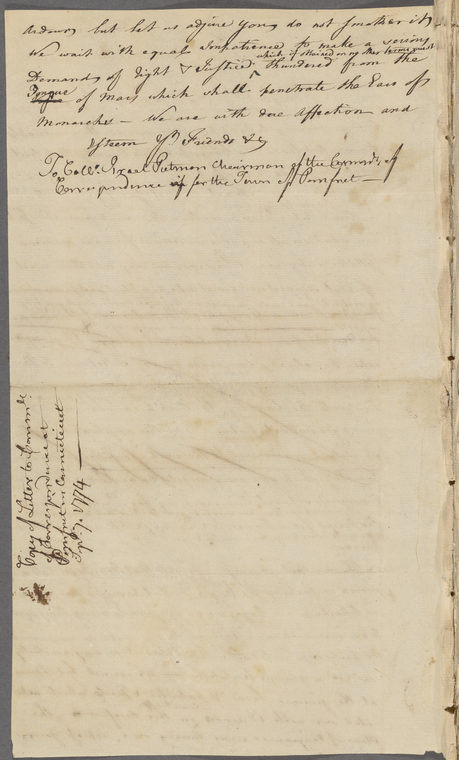 Ardour, but let us adjure you, do not smother it,
We wait with equal Impatience to make a serious
Demand of Right & Justice, ^ which if obtained on no other terms must be thundered from the
Tongue of Mars which shall penetrate the Ears of
Monarchs — We are with due Affection and
Esteem Yr. Friends &c
To Collo. Israel Putmon Chairman of the Commte. of
Correspondence for the Town of Pomfret —
Copy of Letter to Commte.
of Correspondence at
Pomfret in Connecticut
Sepr. 7. 1774